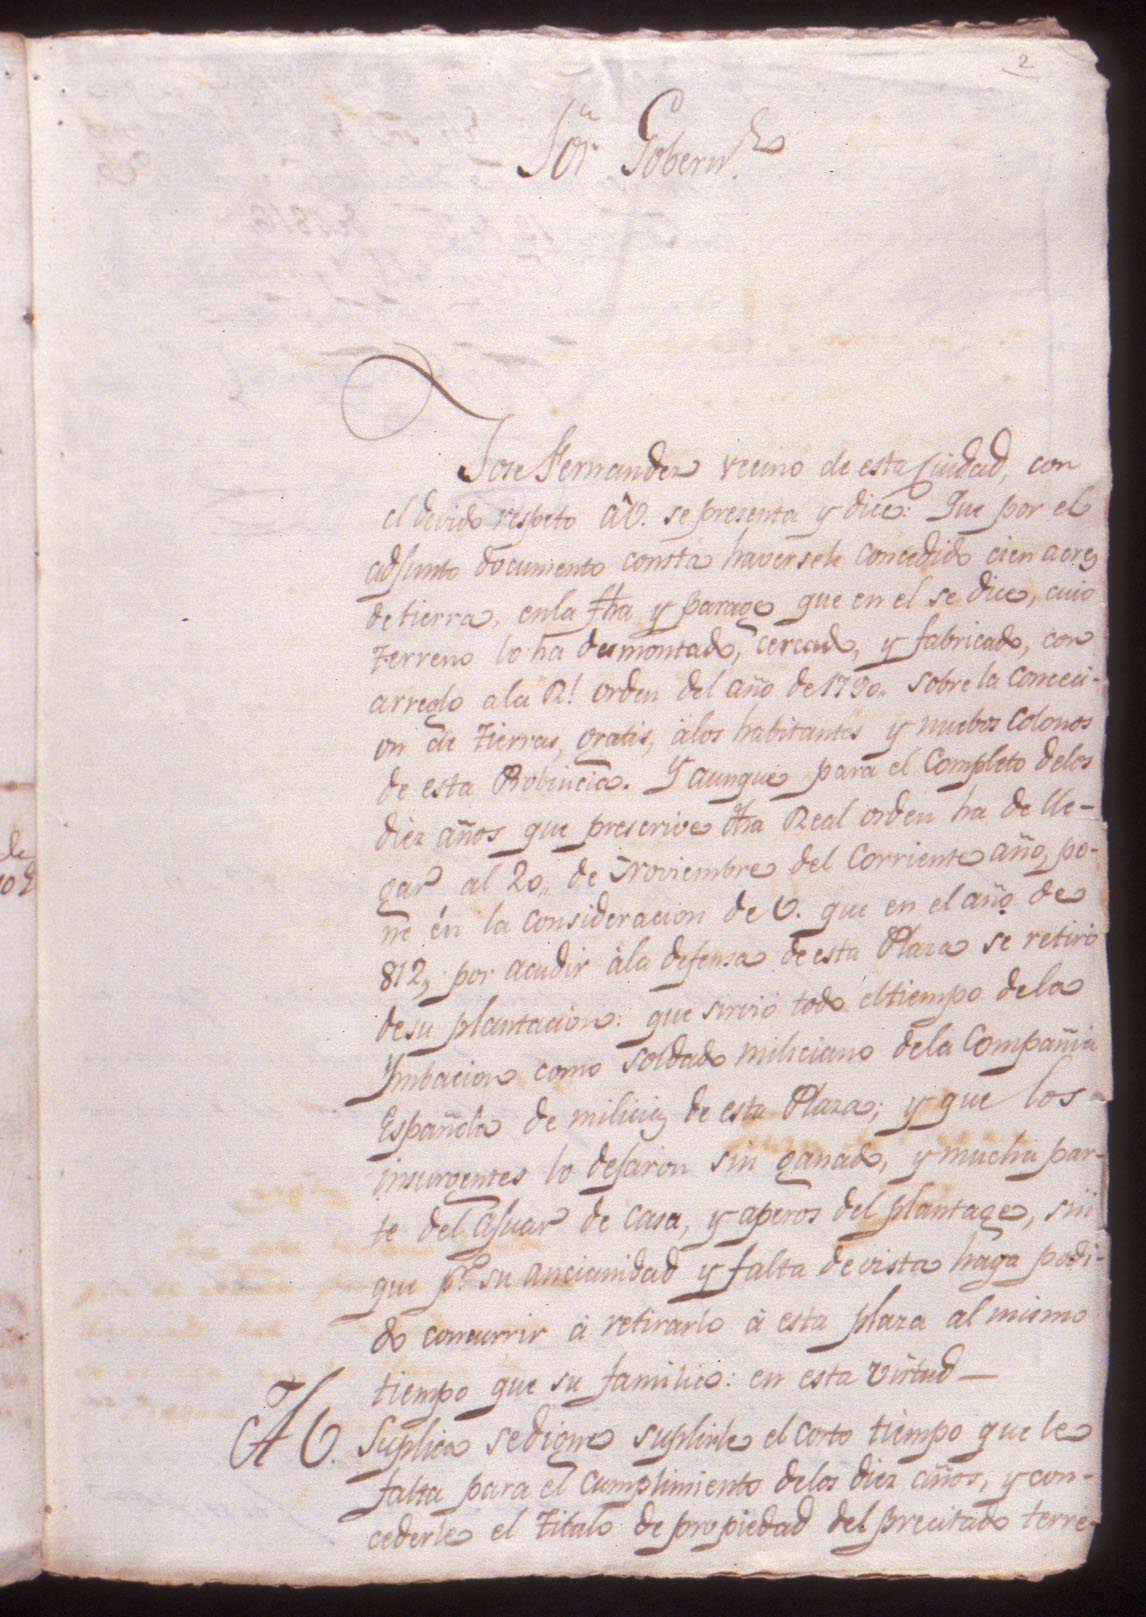 2
Sor. Gobernor.
Jose Fernandez vecino de esta Ciudad, con
el devido respeto â V. se presenta y dice: Que por el
adjunto documento consta haversele concedido cien acres
de tierra, en la fha y parage que en el se dice, cuio
terreno lo ha desmontado, cercado, y fabricado, con
arreglo a la Rl. orden del año de 1790,, sobre la conceci-
on de tierras, gratis, à los habitantes y nuebos colonos
de esta Probincia. Y aunque para el completo de los
diez años que prescrive dha Real orden ha de lle-
gar al 20,, de Noviembre del corriente año, po-
ne én la consideracion de V. que en el año de
812,, por acudir àla defenza de esta Plaza se retiró
de su plantacion: que sirvió todo el tiempo de la
Ymbacion como soldado miliciano dela Compañia
Española de milicias de esta Plaza; y que los
insurgentes lo dejaron sin ganado, y mucha par-
te del ajuar de casa, y aperos del plantage, sin
que pr. su ancianidad y falta de vista haya podi-
do concurrir à retirarlo à esta plaza al mismo
tiempo que su familia: en esta virtud —
A V. Suplica se digne suplirle el corto tiempo que le
falta para el cumplimiento delos diez años, y con-
cederle el Titulo de propiedad del precitado terre-
de